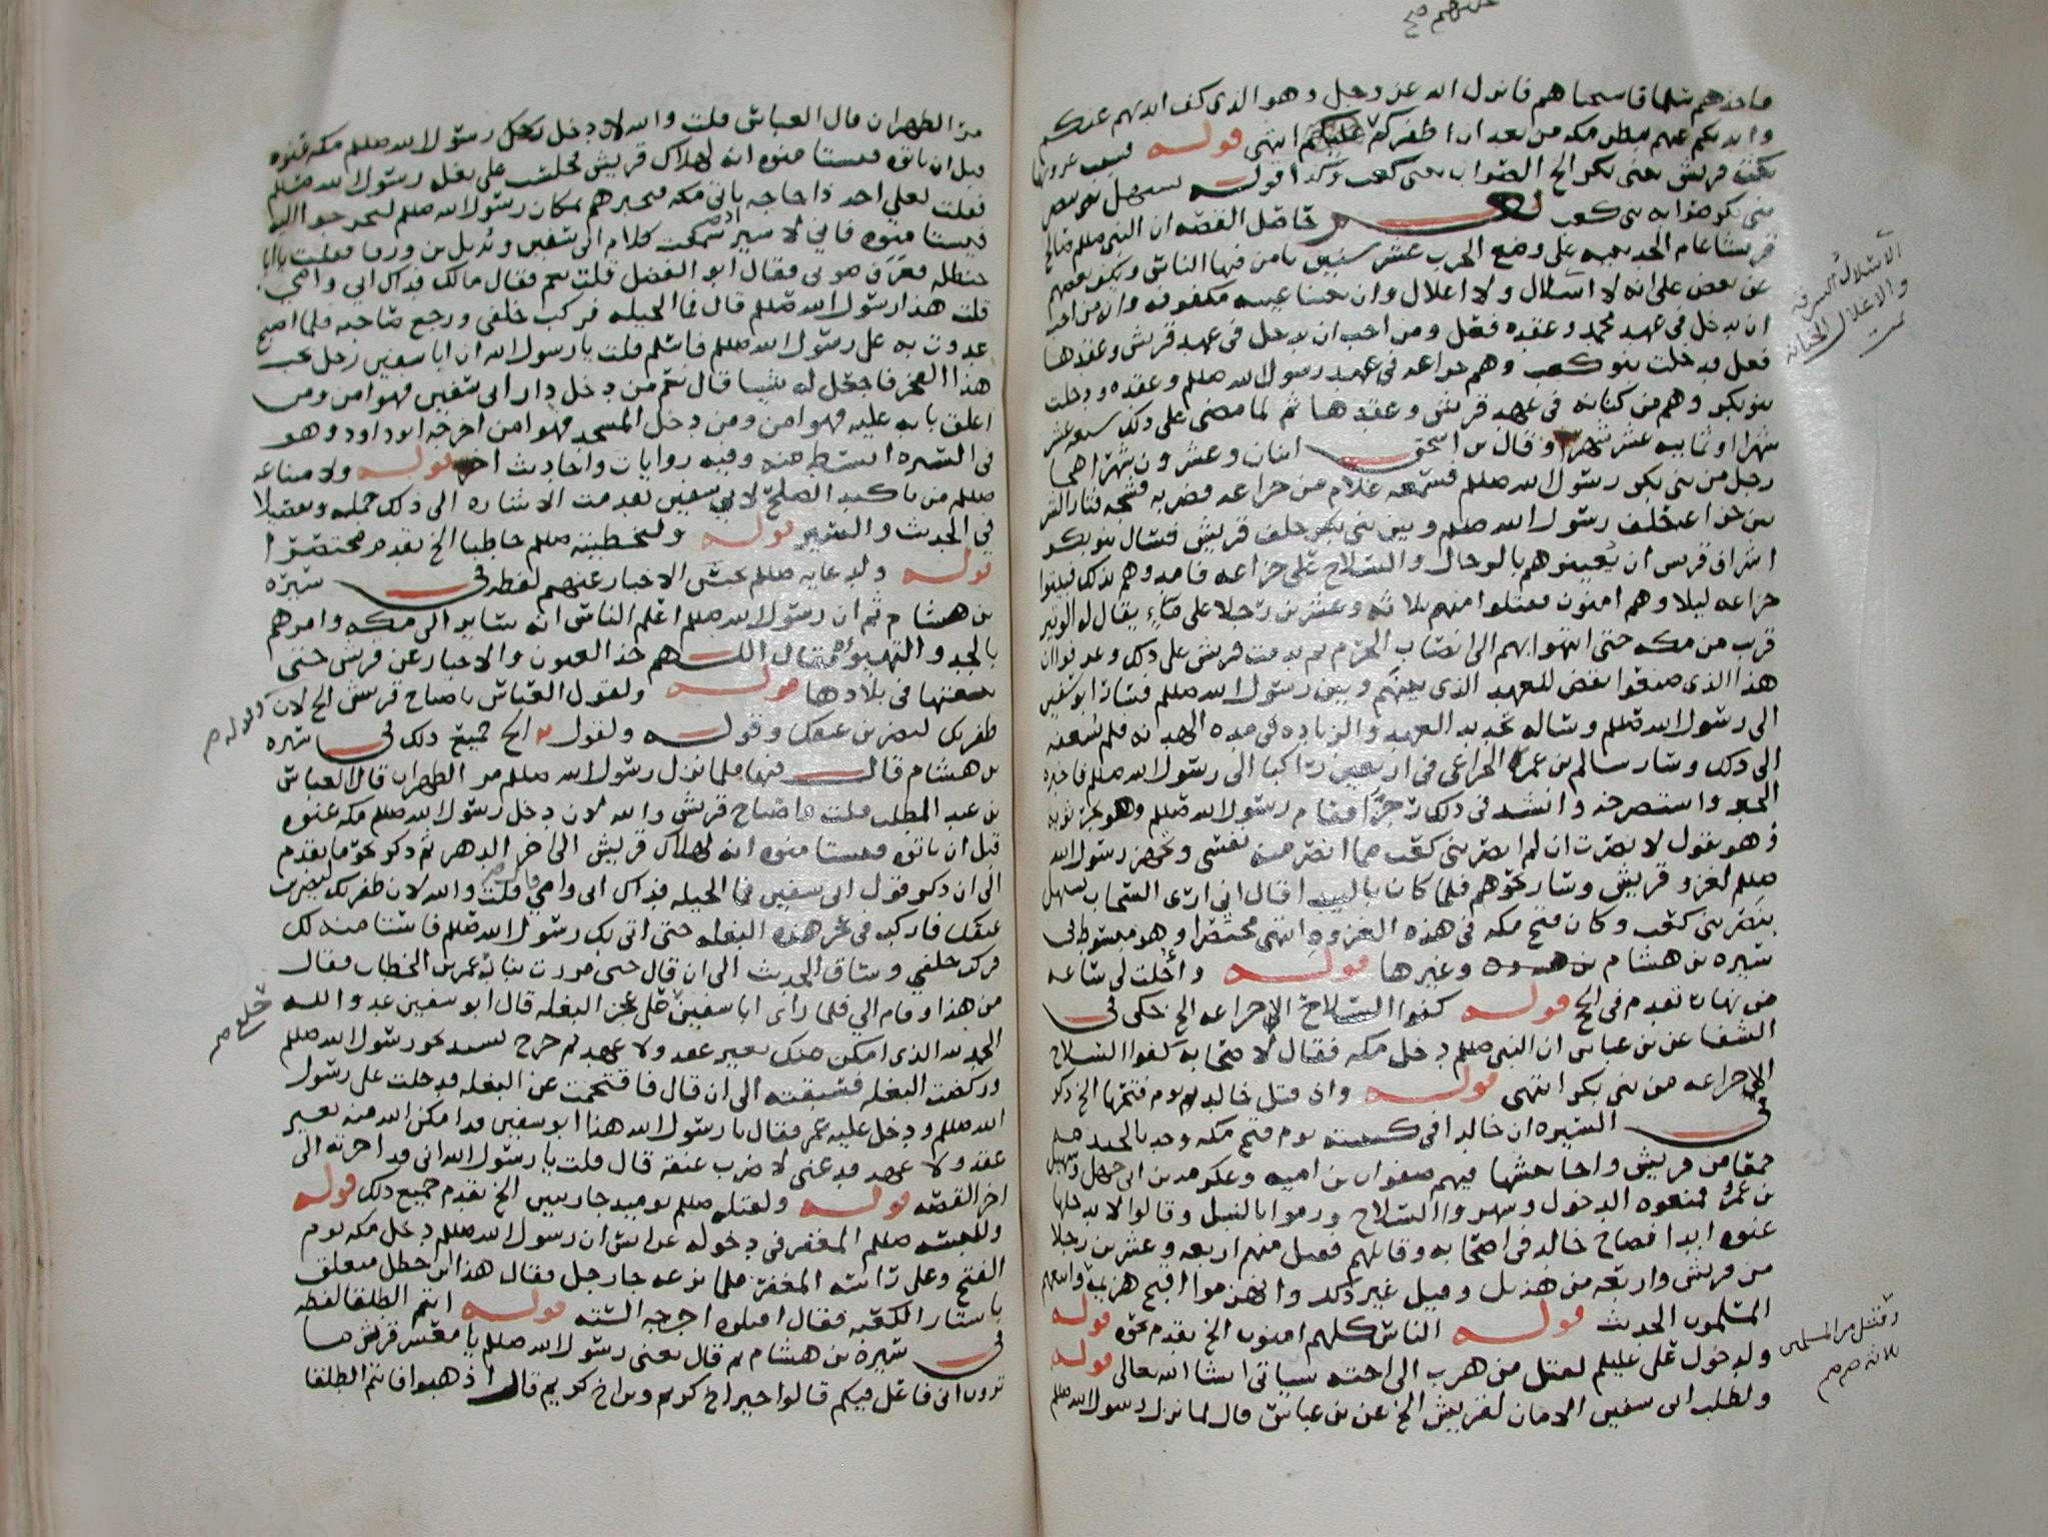 فاخذهم سلما فاستحياهم فانزل الله عز وجل وهو الذي كف ايديهم عنكم
وايديكم عنهم ببطن مكه من بعد ان اظفركم عليكم انتهى قوله
قريش يعني بكر الخ الصواب بعني كعب وكذا قوله
بني بكر صوابه بني كعب حاصل القصه ان النبي صللم صالح
قريشا عام الحديبيه على وضع الحرب عشر سنين يامن فيها الناس ويكف بعضهم
عن بعض على انه لا اسلال ولا اغلال وان بيننا عيبه مكفوفه وان من احب
ان يدخل في عهد محمد وعقده فعل ومن احب ان يدخل في عهد قريش وعقدها
فعل فدخلت بنو كعب وهم خزاعه في عهد رسول الله صللم وعقده ودخلت
بنو بكر وهم من كنانه في عهد قريش وعقدها ثم لما مضى على ذلك سبعه عشر
شهرا او ثمانيه عشر شهرا وقال بن اسحق اثنان وعشرون شهرا هجا
رجل من بني بكر رسول الله صللم فسمعه غلام من خزاعه فضربه فشجه فثار الشر
بين خزاعه حلف رسول الله صللم وبين بني بكر حلف قريش فسال بنو بكر
اشراف قريش ان يعينوهم بالرجال والسلاح على خزاعه فامدوهم بذلك فبيتوا
خزاعه ليلا وهم امنون فقتلوا منهم ثلاثه وعشرين رجلا على ماء يقال له الوتير
قرب من مكه حتى انتهوا بهم الى انصاب الحرم ثم ندمت قريش على ذلك وعرفوا ان
هذا الذي صنعوا نقض للعهد الذي بينهم وبين رسول الله صللم فسار ابو سفين
الى رسول الله صللم وساله تجديد العهد والزياده في مده الهدنه فلم يسعفه
الى ذلك وسار سالم بن عمر الخزاعي في اربعين راكبا الى رسول الله صللم فاخبره
الخبر واستصرخه وانشد في ذلك رجزا فقام رسول الله صللم وهو يجر ثوبه
وهو يقول لا نصرت ان لم انصر بني كعب مما انصر منه نفسي وتجهز رسول الله
صللم لغزو قريش وسار نحوهم فلما كان بالبيدا قال اني ارى السحاب يستهل
بنصر بني كعب وكان فتح مكه في هذه الغزوه انتهى مختصرا وهو مبسوط في
سيره بن هشام وغيرها قوله واحلت لي ساعه
من نهار تقدم في الخ قوله كفوا السلاح الا خزاعه الخ حكى في
الشفا عن بن عباس ان النبي صللم دخل مكه فقال لاصحابه كفوا السلاح
الا خزاعه من بني بكر انتهى قوله واذ قتل خالد يوم فتحها الخ ذكر
في السيره ان خالدا في كتيبته يوم فتح مكه وجد بالخندمه
جمعا من قريش واحابيشها فيهم صفوان بن اميه وعكرمه بن ابي جهل وسهيل
بن عمرو فمنعوه الدخول وشهروا السلاح ورموا بالنبل وقالوا لا تدخلها
عنوه ابدا فصاح خالد في اصحابه وقاتلهم فقتل منهم اربعه وعشرين رجلا
من قريش واربعه من هذيل وقيل غير ذلك وانهزموا اقبح هزيمه واتبعهم
المسلمون الحديث قوله الناس كلهم امنون الخ تقدم نحوه قوله
ولدخول علي عليلم لقتل من هرب الى اخته سياتي انشا الله تعالى قوله
ولطلب ابي سفين الامان لقريش الخ عن بن عباس قال لما نزل رسول الله صللم
الاسلال السرقه
والاغلال الخيانه
وقتل من المسلمين
ثلاثه
مر الظهران قال العباس قلت والله لان دخل رسول الله صللم مكه عنوه
قبل ان ياتوه فيستامنوه انه لهلاك قريش فجلست على بغله رسول الله صللم
فقلت لعلي اجد ذا حاجه ياتي مكه فيخبرهم بمكان رسول الله صللم ليخرجوا اليه
فيستامنوه فاني لاسير اذ سمعت كلام ابي سفين وبديل بن ورقا فقلت يا ابا
حنظله فعرف صوتي فقال ابو الفضل قلت نعم فقال مالك فداك ابي وامي
قلت هذا رسول الله صللم قال فما الحيله فركب خلفي ورجع صاحبه فلما اصبح
غدوت به على رسول الله صللم فاسلم قلت يا رسول الله ان ابا سفين رجل يحب
هذا الفخر فاجعل له شيا قال نعم من دخل دار ابي سفين فهو امن ومن
اغلق بابه عليه فهو امن ومن دخل المسجد فهو امن اخرجه ابو داود وهو
في السيره ابسط منه وفيه روايات واحاديث اخر قوله ولامتناعه
صللم من تاكيد الصلح لابي سفين تقدمت الاشاره الى ذلك جمله وتفصيلا
في الحديث والسير قوله ولخطبته صللم خاطبا الخ تقدم مختصرا
قوله ولدعايه صللم بحبس الاخبار عنهم لفظه في سيره
بن هشام ثم ان رسول الله صللم اعلم الناس انه سائر الى مكه وامرهم
بالجد والتهيو وقال اللهم خذ العيون والاخبار عن قريش حتى
نبغتها في بلادها قوله ولقول العباس يا صباح قريش الخ لان
ظفر بك ليضربن عنقك وقوله ولقوله الخ جميع ذلك في سيره
بن هشام قال فيها فلما نزل رسول الله صللم مر الظهران قال العباس
بن عبد المطلب قلت واصباح قريش والله لان دخل رسول الله صللم مكه عنوه
قبل ان ياتوه فيستامنوه انه لهلاك قريش الى اخر الدهر ثم ذكر نحو ما تقدم
الى ان ذكر قول ابي سفين فما الحيله فداك ابي وامي قلت والله لان ظفر بك ليضربن
عنقك فاركب في عجز هذه البغله حتى اتي بك رسول الله صللم فاستامنه لك
فركب خلفي وساق الحديث الى ان قال حتى مررت بنار عمر بن الخطاب فقال
من هذا وقام الي فلما راى ابا سفين على عجز البغله قال ابو سفين عدو الله
الحمد لله الذي امكن منك بغير عقد ولا عهد ثم خرج يشتد نحو رسول الله صللم
وركضت البغله فسبقته الى ان قال فاقتحمت عن البغله فدخلت على رسول
الله صللم ودخل عليه عمر فقال يا رسول الله هذا ابو سفين قد امكن الله منه بغير
عقد ولا عهد فدعني لاضرب عنقه قال قلت يا رسول الله اني قد اجرته الى
اخر القصه قوله ولقتله صللم يوميذ جاريتين الخ تقدم جميع ذلك قوله
وللبسه صللم المغفر في دخوله عن انس ان رسول الله صللم دخل مكه يوم
الفتح وعلى راسه المغفر فلما نزعه جا رجل فقال هذا ابن خطل متعلق
باستار الكعبه فقال اقتلوه اخرجه السته قوله انتم الطلقا لفظه
في سيره بن هشام ثم قال يعني رسول الله صللم يا معشر قريش ما
ترون اني فاعل فيكم قالوا خيرا اخ كريم وبن اخ كريم قال اذهبوا فانتم الطلقا